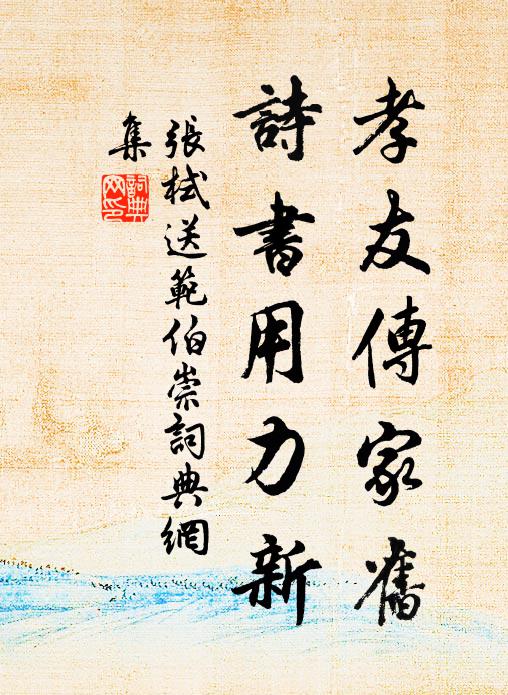 孝友傳家舊
詩書用力新
張栻送範伯崇詞典網
集
詞典網印